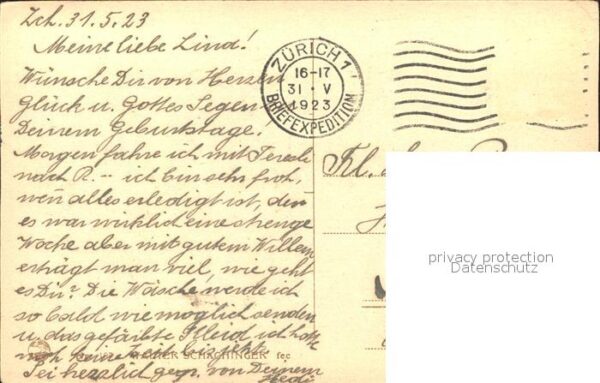 Zch. 31.5.23
Meine liebe Lind!
Wünsche Dir von Herzen
Glück u. Gottes Segen
Deinem Geburtstage.
Morgen fahre ich mit
nach R. -- ich bin sehr froh,
wen alles erledigt ist, den
es war wirklich eine strenge
Woche aber mit gutem Willem
erträgt man viel, wie geht
es Dir? Die Wäsche werde ich
so bald wie möglich senden
u. das gefärbte Kleid, ich hatte
noch keine Zeit
Sei herzlich gegr. von Deinem
Hedi
WALTER SCHACHINGER fec
ZÜRICH 1
16-17
31 · V
1923
BRIEFEXPEDITION
Frl.
privacy protection
Datenschutz